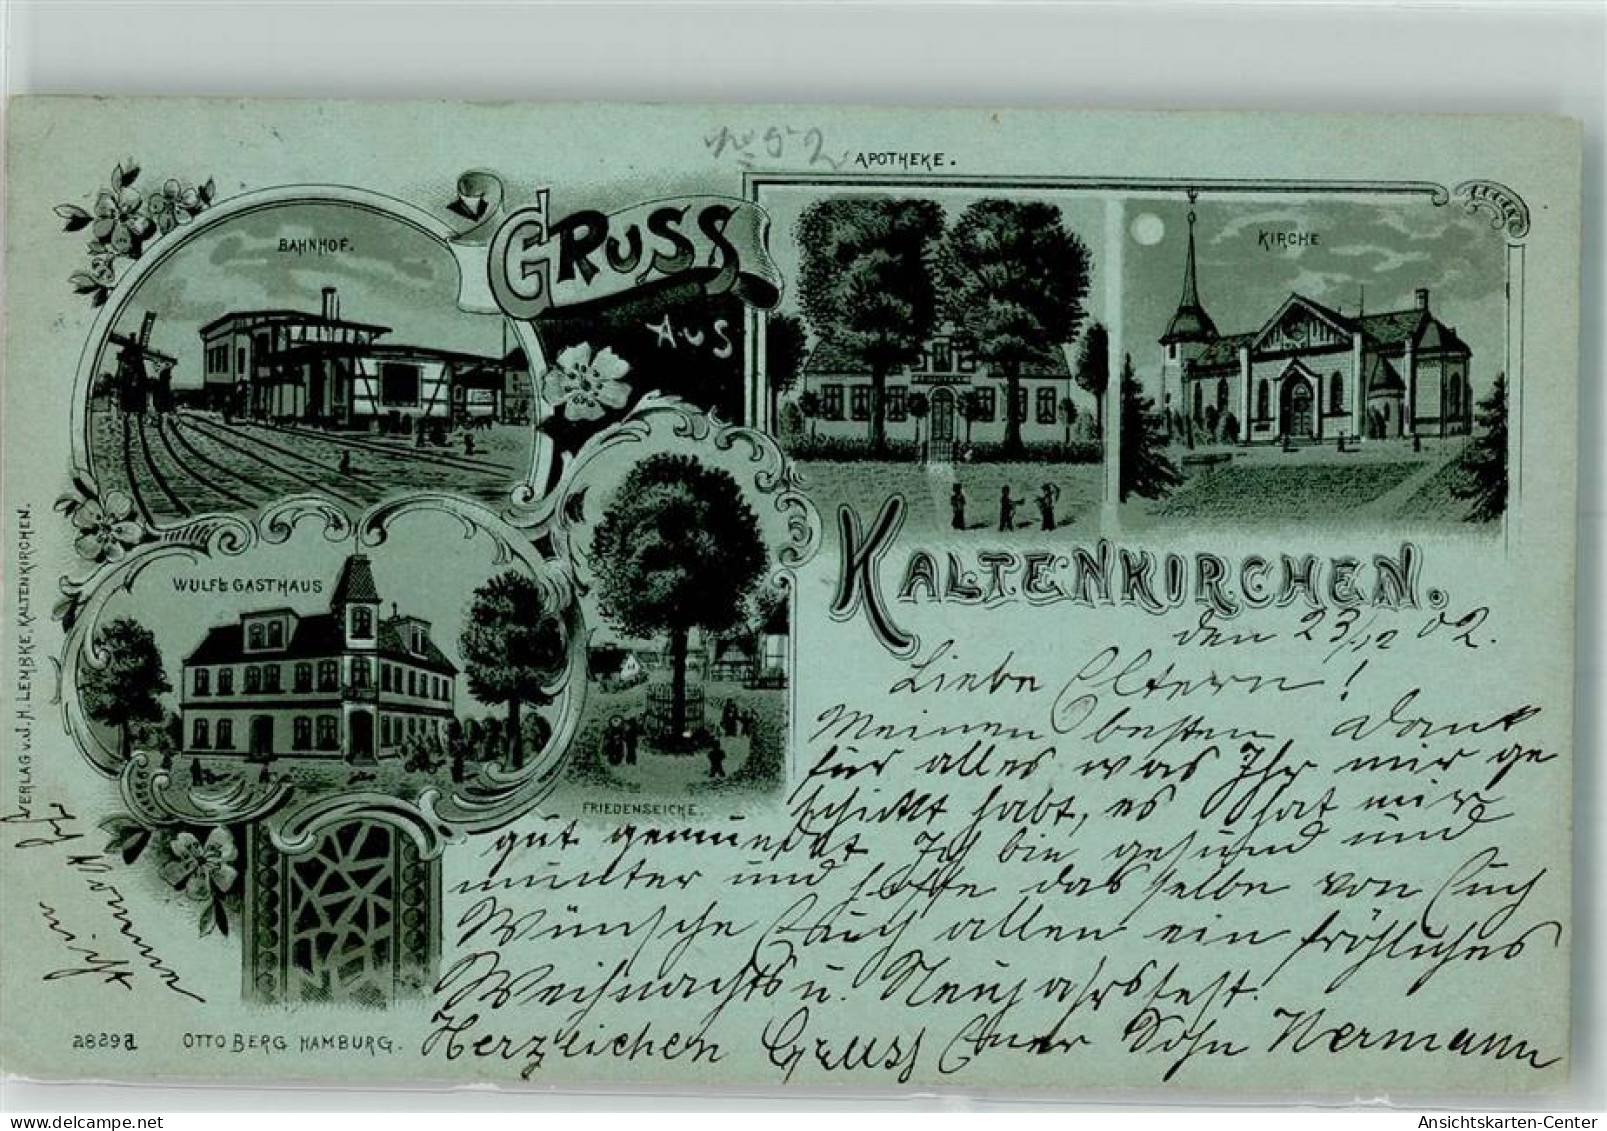 APOTHEKE.
BAHNHOF.
GRUSS
AUS
KIRCHE
WULF'S GASTHAUS
FRIEDENSEICHE.
KALTENKIRCHEN.
den 23/12 02.
Liebe Eltern!
Meinen besten Dank
für alles was Ihr mir ge
schickt habt, es hat mir
gut gemundet Ich bin gesund und
munter und hoffe das selbe von Euch
Wünsche Euch allen ein fröhliches
Weihnachts u. Neujahrsfest.
Herzlichen Gruss Euer Sohn Hermann
Ich komme
nicht
VERLAG v. J. H. LEMBKE, KALTENKIRCHEN.
2829a OTTO BERG HAMBURG.
Ansichtskarten-Center